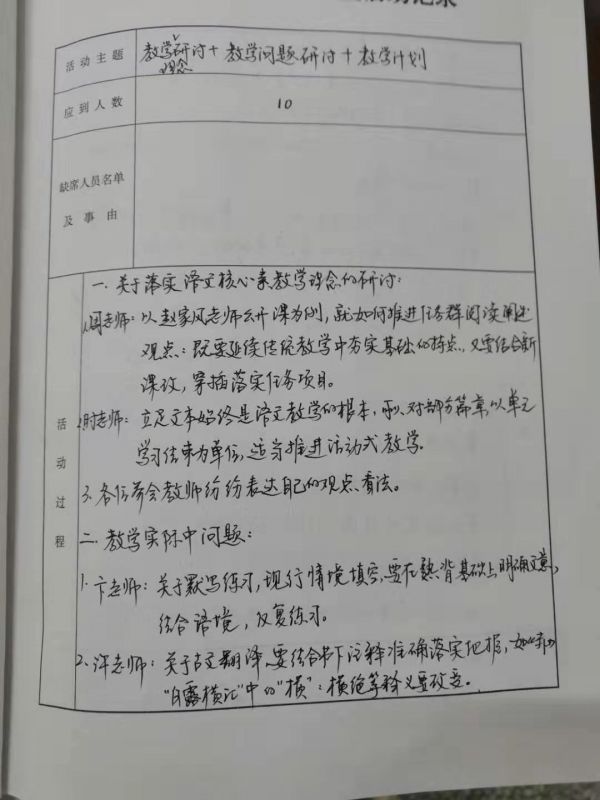 活动记录
活动主题
教学研讨+教学问题研讨+教学计划
理念
应到人数
10
缺席人员名单
及事由
一.关于落实语文核心素教学理念的研讨:
1.周老师:以赵家凤老师公开课为例,就如何推进任务群阅读阐述
观点:既要延续传统教学中夯实基础的特点,又要结合新
课改,穿插落实任务项目。
活动过程
2.时老师:立足文本始终是语文教学的根本,可以对部分篇章,以单元
学习结束为单位,适当推进活动式教学。
3.各位参会教师纷纷表达自己的观点看法。
二.教学实际中问题:
1.卞老师:关于默写练习,现行情境填空,要在熟背基础上明确文意,
结合语境,反复练习。
2.许老师:关于古文翻译,要结合书下注释准确落实把握,如
"白露横江"中的"横":横绝等释义要改变。